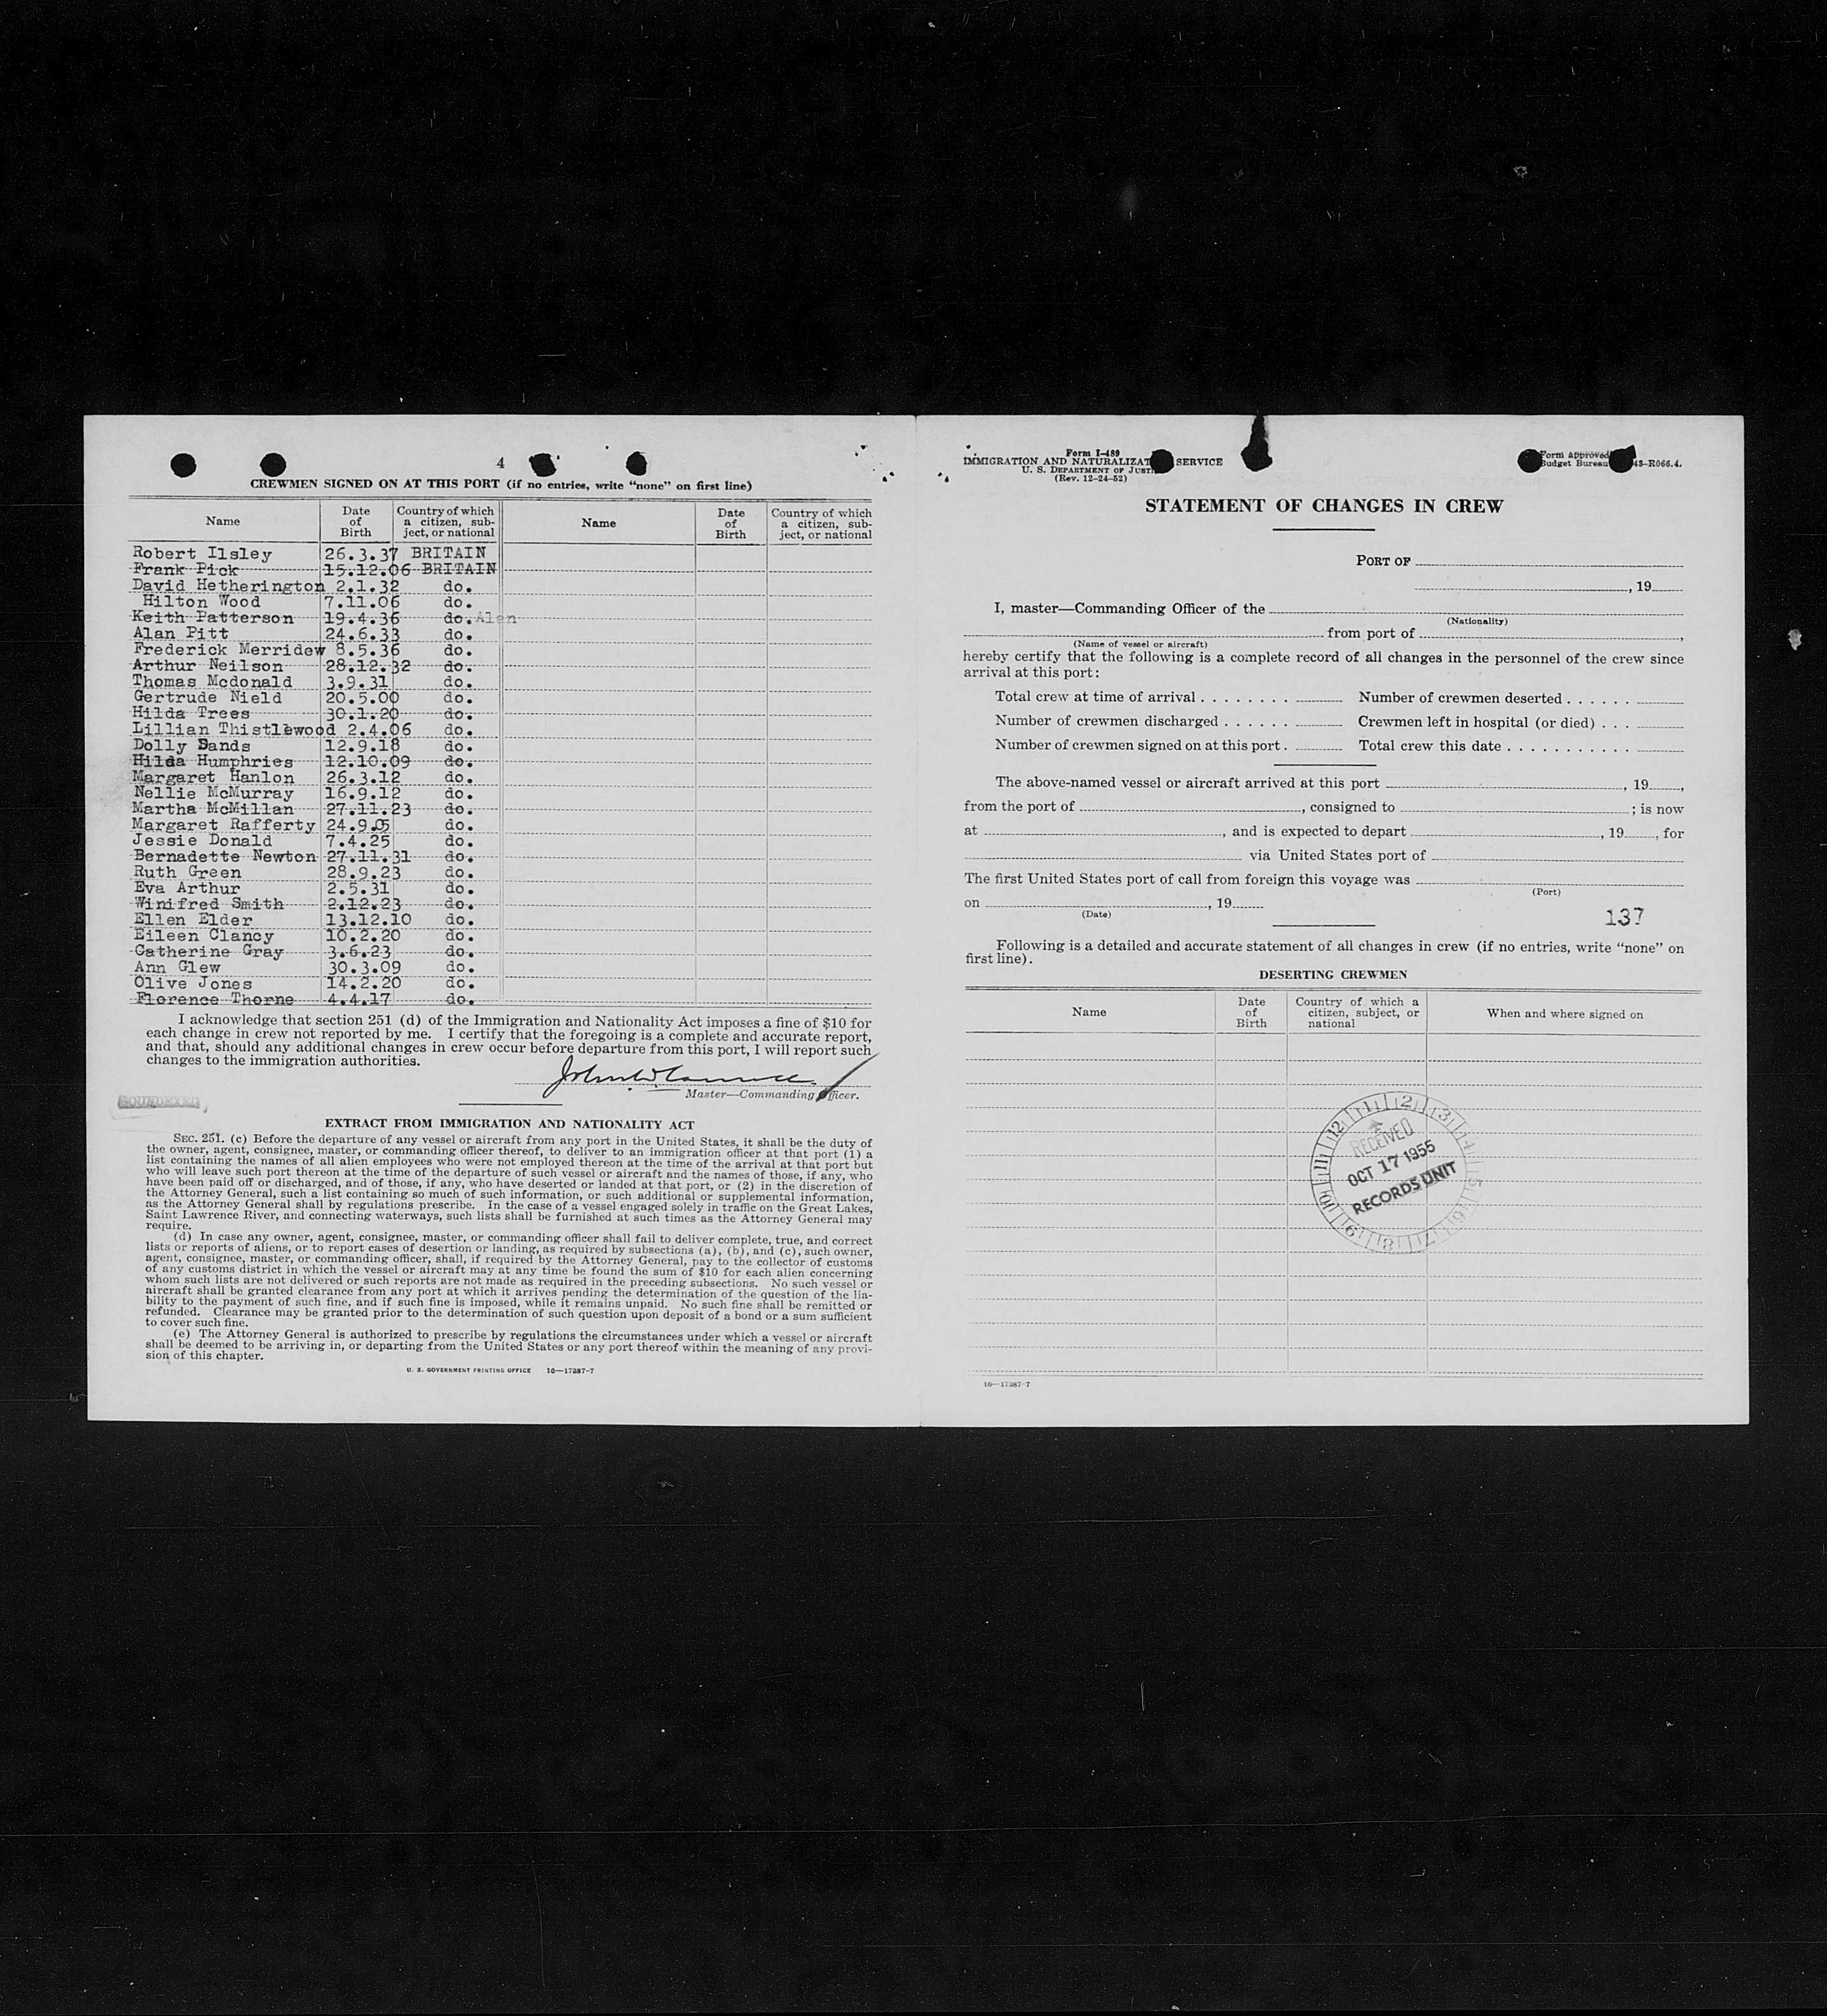 4
CREWMEN SIGNED ON AT THIS PORT (if no entries, write “none” on first line)
Name Date of Birth Country of which a citizen, subject, or national Name Date of Birth Country of which a citizen, subject, or national
Robert Ilsley 26.3.37 BRITAIN
Frank Pick 15.12.06 BRITAIN
David Hetherington 2.1.32 do.
Hilton Wood 7.11.06 do.
Keith Patterson 19.4.36 do. Alen
Alan Pitt 24.6.33 do.
Frederick Merridew 8.5.36 do.
Arthur Neilson 28.12.32 do.
Thomas Mcdonald 3.9.31 do.
Gertrude Nield 20.5.00 do.
Hilda Trees 30.1.20 do.
Lillian Thistlewood 2.4.06 do.
Dolly Sands 12.9.18 do.
Hilda Humphries 12.10.09 do.
Margaret Hanlon 26.3.12 do.
Nellie McMurray 16.9.12 do.
Martha McMillan 27.11.23 do.
Margaret Rafferty 24.9.05 do.
Jessie Donald 7.4.25 do.
Bernadette Newton 27.11.31 do.
Ruth Green 28.9.23 do.
Eva Arthur 2.5.31 do.
Winifred Smith 2.12.23 do.
Ellen Elder 13.12.10 do.
Eileen Clancy 10.2.20 do.
Catherine Gray 3.6.23 do.
Ann Glew 30.3.09 do.
Olive Jones 14.2.20 do.
Florence Thorne 4.4.17 do.
I acknowledge that section 251 (d) of the Immigration and Nationality Act imposes a fine of $10 for
each change in crew not reported by me. I certify that the foregoing is a complete and accurate report,
and that, should any additional changes in crew occur before departure from this port, I will report such
changes to the immigration authorities.
Master—Commanding Officer.
EXTRACT FROM IMMIGRATION AND NATIONALITY ACT
SEC. 251. (c) Before the departure of any vessel or aircraft from any port in the United States, it shall be the duty of
the owner, agent, consignee, master, or commanding officer thereof, to deliver to an immigration officer at that port (1) a
list containing the names of all alien employees who were not employed thereon at the time of the arrival at that port but
who will leave such port thereon at the time of the departure of such vessel or aircraft and the names of those, if any, who
have been paid off or discharged, and of those, if any, who have deserted or landed at that port, or (2) in the discretion of
the Attorney General, such a list containing so much of such information, or such additional or supplemental information,
as the Attorney General shall by regulations prescribe. In the case of a vessel engaged solely in traffic on the Great Lakes,
Saint Lawrence River, and connecting waterways, such lists shall be furnished at such times as the Attorney General may
require.
(d) In case any owner, agent, consignee, master, or commanding officer shall fail to deliver complete, true, and correct
lists or reports of aliens, or to report cases of desertion or landing, as required by subsections (a), (b), and (c), such owner,
agent, consignee, master, or commanding officer, shall, if required by the Attorney General, pay to the collector of customs
of any customs district in which the vessel or aircraft may at any time be found the sum of $10 for each alien concerning
whom such lists are not delivered or such reports are not made as required in the preceding subsections. No such vessel or
aircraft shall be granted clearance from any port at which it arrives pending the determination of the question of the lia-
bility to the payment of such fine, and if such fine is imposed, while it remains unpaid. No such fine shall be remitted or
refunded. Clearance may be granted prior to the determination of such question upon deposit of a bond or a sum sufficient
to cover such fine.
(e) The Attorney General is authorized to prescribe by regulations the circumstances under which a vessel or aircraft
shall be deemed to be arriving in, or departing from the United States or any port thereof within the meaning of any provi-
sion of this chapter.
U. S. GOVERNMENT PRINTING OFFICE 16—17387-7
Form I-489
IMMIGRATION AND NATURALIZAT SERVICE
U. S. DEPARTMENT OF JUST
(Rev. 12-24-52)
Form approved
Budget Bureau 43-R066.4.
STATEMENT OF CHANGES IN CREW
PORT OF
, 19
I, master—Commanding Officer of the
(Nationality)
from port of ,
(Name of vessel or aircraft)
hereby certify that the following is a complete record of all changes in the personnel of the crew since
arrival at this port:
Total crew at time of arrival . . . . . . . . Number of crewmen deserted . . . . . .
Number of crewmen discharged . . . . . . Crewmen left in hospital (or died) . . .
Number of crewmen signed on at this port . Total crew this date . . . . . . . . . . .
The above-named vessel or aircraft arrived at this port , 19 ,
from the port of , consigned to ; is now
at , and is expected to depart , 19 , for
via United States port of
The first United States port of call from foreign this voyage was
(Port)
on , 19
(Date)
137
Following is a detailed and accurate statement of all changes in crew (if no entries, write “none” on
first line).
DESERTING CREWMEN
Name Date of Birth Country of which a citizen, subject, or national When and where signed on
12 1 2 3 4 5 6 7 8 9 10 11
RECEIVED
OCT 17 1955
RECORDS UNIT
16—17387-7